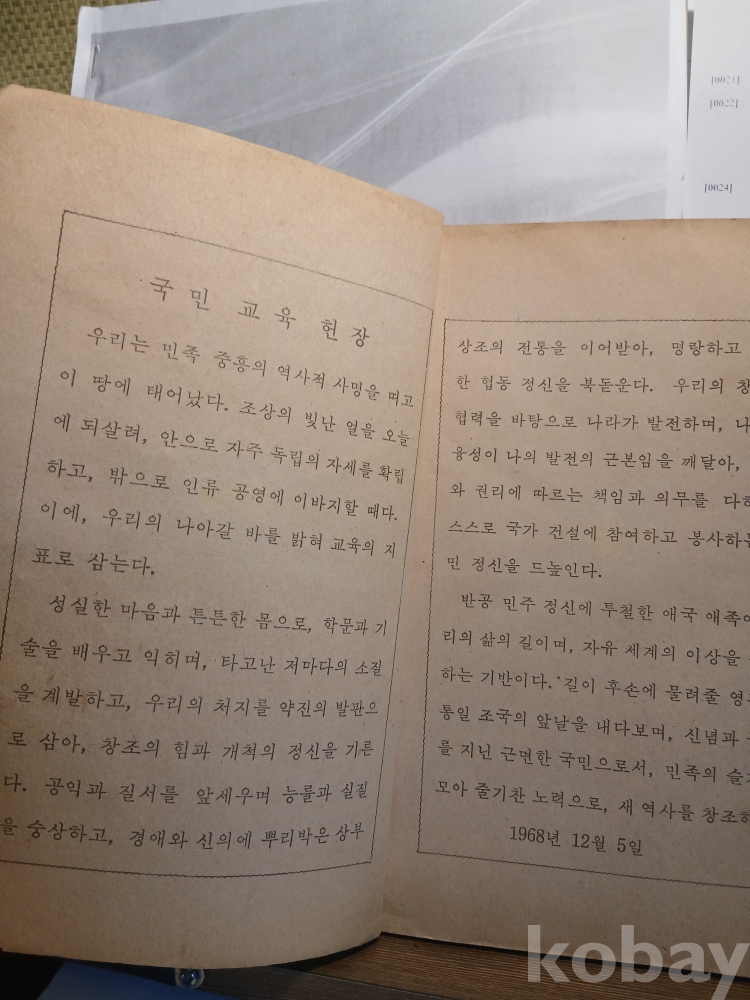 [0021]
[0022]
[0024]
국민 교육 헌장
우리는 민족 중흥의 역사적 사명을 띠고
이 땅에 태어났다. 조상의 빛난 얼을 오늘
에 되살려, 안으로 자주 독립의 자세를 확립
하고, 밖으로 인류 공영에 이바지할 때다.
이에, 우리의 나아갈 바를 밝혀 교육의 지
표로 삼는다.
성실한 마음과 튼튼한 몸으로, 학문과 기
술을 배우고 익히며, 타고난 저마다의 소질
을 계발하고, 우리의 처지를 약진의 발판으
로 삼아, 창조의 힘과 개척의 정신을 기른
다. 공익과 질서를 앞세우며 능률과 실질
을 숭상하고, 경애와 신의에 뿌리박은 상부
상조의 전통을 이어받아, 명랑하고
한 협동 정신을 북돋운다. 우리의 창
협력을 바탕으로 나라가 발전하며, 나
융성이 나의 발전의 근본임을 깨달아,
와 권리에 따르는 책임과 의무를 다하
스스로 국가 건설에 참여하고 봉사하는
민 정신을 드높인다.
반공 민주 정신에 투철한 애국 애족이
리의 삶의 길이며, 자유 세계의 이상을
하는 기반이다. 길이 후손에 물려줄 영
통일 조국의 앞날을 내다보며, 신념과
를 지닌 근면한 국민으로서, 민족의 슬
모아 줄기찬 노력으로, 새 역사를 창조하
1968년 12월 5일
kobay